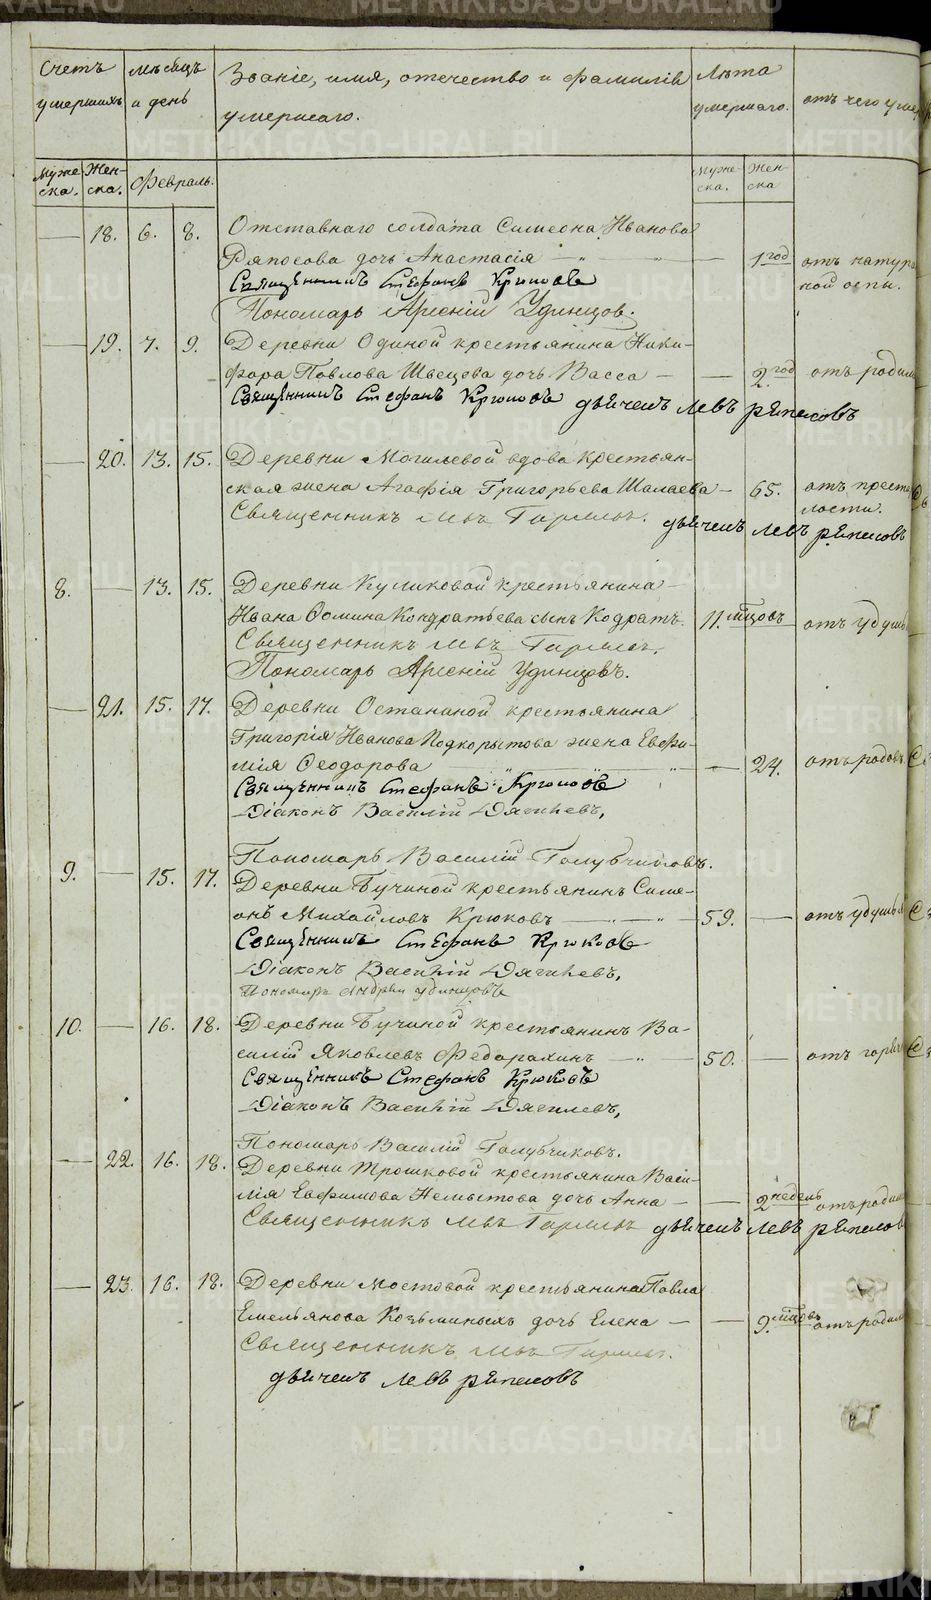 Счетъ умершихъ
Мѣсяцъ и день
Званіе, имя, отечество и фамилія умершаго.
Лѣта умершаго.
отъ чего умер
Муже-ска. Жен-ска. Февраль.
Муже-ска. Жен-ска
18. 6. 8. Отставнаго солдата Симеона Иванова
Ряпосова дочь Анастасія — 1 год отъ натура
Священникъ Стефанъ Крюковъ ной оспы.
Пономарь Арсеній Удинцов.
19. 7. 9. Деревни Одиной крестьянина Ники-
фора Павлова Швецева дочь Васса — 2 год отъ родим
Священникъ Стефанъ Крюковъ дьячекъ Левъ Ряпасовъ
20. 13. 15. Деревни Могилевой вдова крестьян-
ская жена Агафія Григорьева Шалаева — 65. отъ преста
Священникъ Левъ лости.
дьячекъ Левъ Ряпасовъ
8. — 13. 15. Деревни Куликовой крестьянина
Ивана Ѳомина Кондратьева сынъ Кодратъ 11. мцовъ отъ удушь
Священникъ Левъ
Пономарь Арсеній Удинцовъ.
21. 15. 17. Деревни Останиной крестьянина
Григорія Иванова Подкорытова жена Евфи-
мія Ѳеодорова — 24. отъ родов
Священникъ Стефанъ Крюковъ
Діаконъ Василій Дягилевъ,
Пономарь Василій Голубчиковъ.
9. — 15. 17. Деревни Бучиной крестьянинъ Симе-
онъ Михайловъ Крюковъ — 59. — отъ удушья
Священникъ Стефанъ Крюковъ
Діаконъ Василій Дягилевъ,
Пономарь Андрей Удинцовъ
10. — 16. 18. Деревни Бучиной крестьянинъ Ва-
силій Яковлевъ Федорахинъ — 50. — отъ горяч
Священникъ Стефанъ Крюковъ
Діаконъ Василій Дягилевъ,
Пономарь Василій Голубчиковъ.
22. 16. 18. Деревни Трошковой крестьянина Васи-
лія Евфимова дочь Анна — 2 недель отъ родим
Священникъ Левъ дьячекъ Левъ Ряпасов
23. 16. 18. Деревни Мостовой крестьянина Павла
Емельянова Козьминыхъ дочь Елена — 9. мцовъ отъ родим
Священникъ Левъ
дьячекъ Левъ Ряпасовъ
METRIKI.GASO-URAL.RU